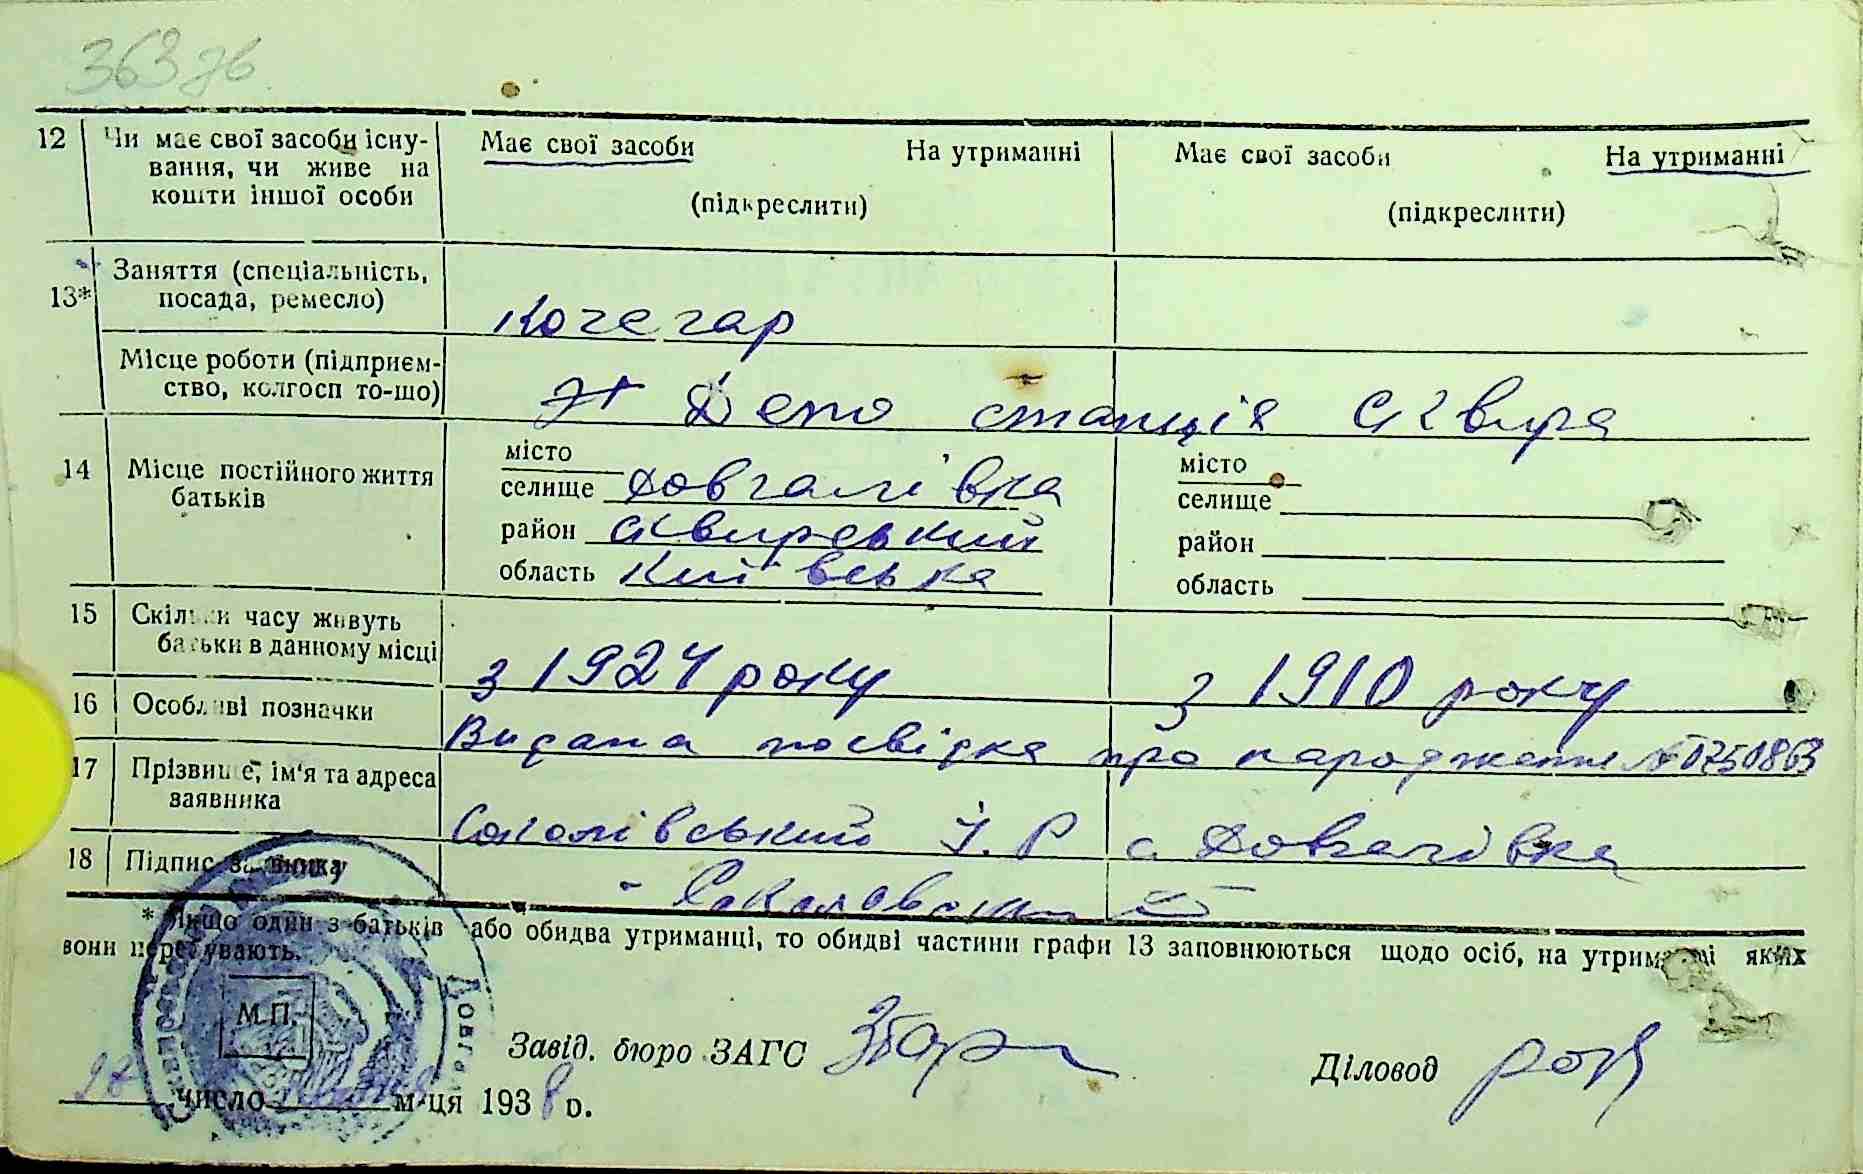 363 зв
12 Чи має свої засоби існу- Має свої засоби На утриманні Має свої засоби На утриманні
вання, чи живе на
кошти іншої особи (підкреслити) (підкреслити)
13* Заняття (спеціальність,
посада, ремесло) Кочегар
Місце роботи (підприєм-
ство, колгосп то-що) Депо станція Сквира
14 Місце постійного життя батьків місто місто
селище Довгалівка селище
район Сквирський район
область Київська область
15 Скільки часу живуть
батьки в данному місці з 1924 року з 1910 року
16 Особливі позначки Видана посвідка про народження № 0750863
17 Прізвище, ім'я та адреса
заявника Соколівський І. Р с. Довгалівка
18 Підпис заявника
* Якщо один з батьків або обидва утриманці, то обидві частини графи 13 заповнюються щодо осіб, на утриманні яких
вони перебувають.
М.П.
Завід. бюро ЗАГС Діловод
число м-ця 1938 р.